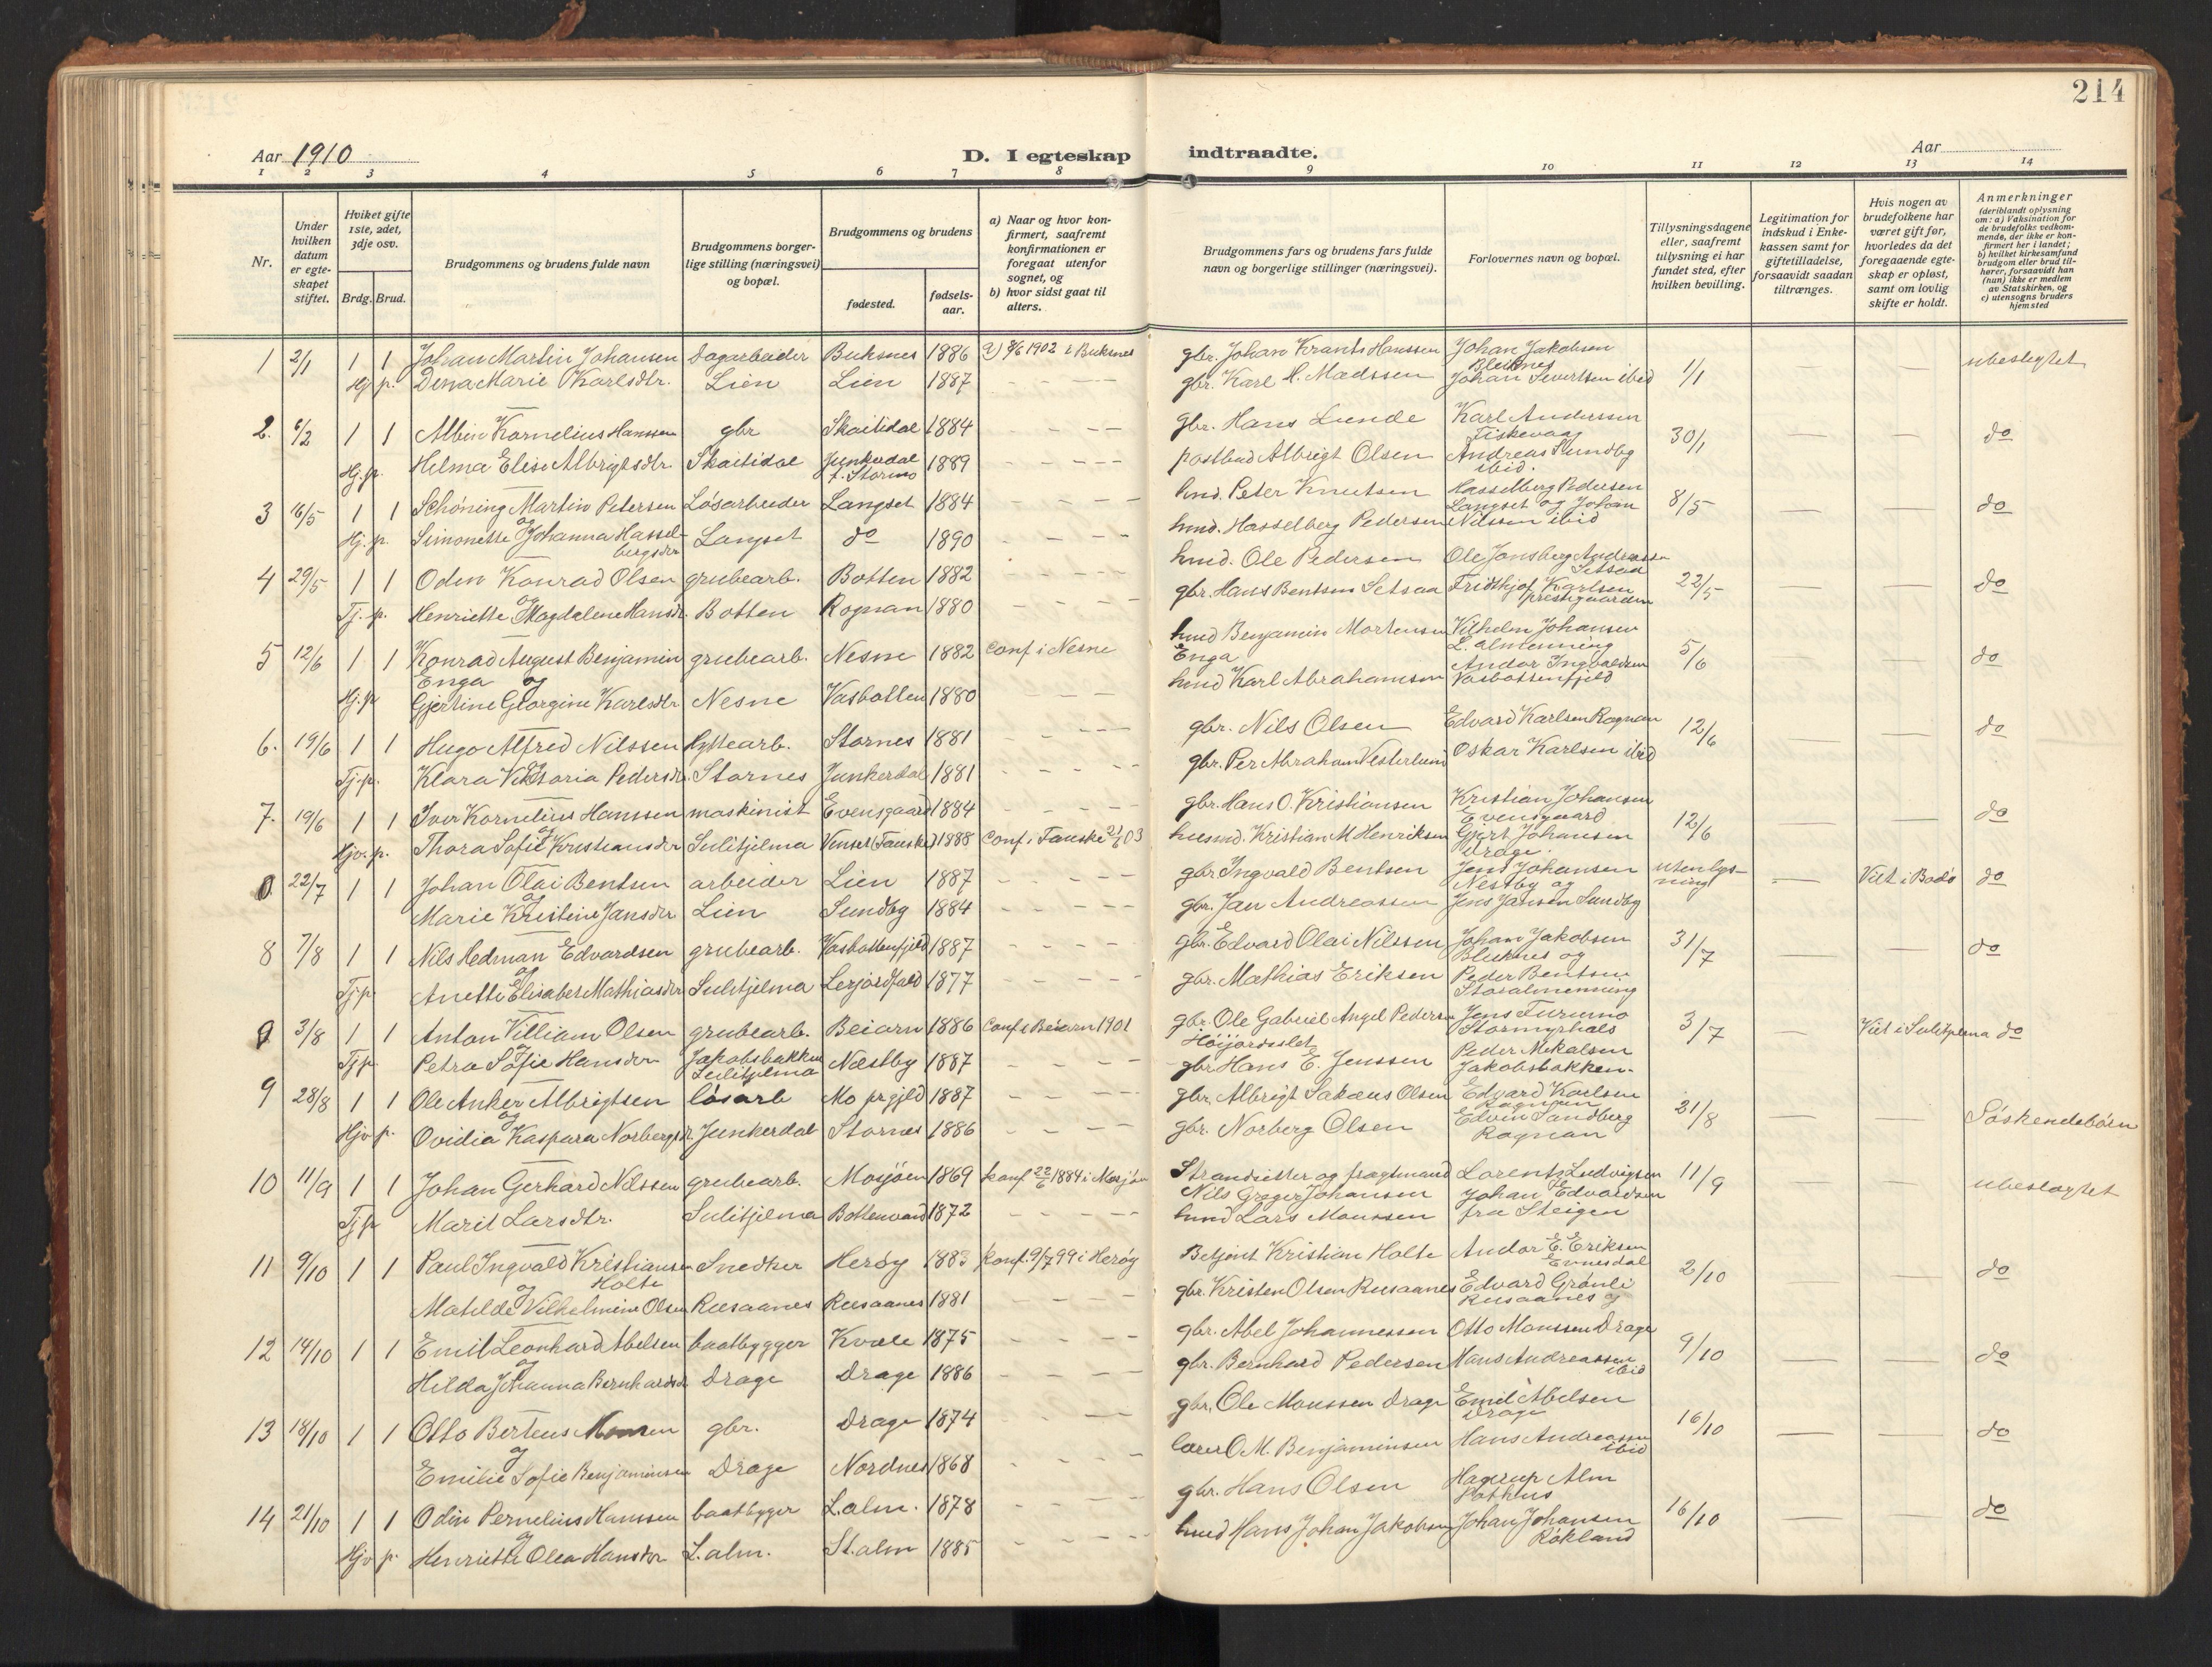 214
Aar 1910
D. I egteskap indtraadte.
Aar
1 2 3 4 5 6 7 8 9 10 11 12 13 14
Nr.
Under hvilken datum er egteskapet stiftet.
Hviket gifte 1ste, 2det, 3dje osv.
Brdg. Brud.
Brudgommens og brudens fulde navn
Brudgommens borgerlige stilling (næringsvei) og bopæl.
Brudgommens og brudens
fødested.
fødsels-aar.
a) Naar og hvor konfirmert, saafremt konfirmationen er foregaat utenfor sognet, og
b) hvor sidst gaat til alters.
Brudgommens fars og brudens fars fulde navn og borgerlige stillinger (næringsvei).
Forlovernes navn og bopæl.
Tillysningsdagene eller, saafremt tillysning ei har fundet sted, efter hvilken bevilling.
Legitimation for indskud i Enkekassen samt for giftetilladelse, forsaavidt saadan tiltrænges.
Hvis nogen av brudefolkene har været gift før, hvorledes da det foregaaende egteskap er opløst, samt om lovlig skifte er holdt.
Anmerkninger
(deriblandt oplysning om: a) Vaksination for de brudefolks vedkommende, der ikke er konfirmert her i landet; b) hvilket kirkesamfund brudgom eller brud tilhører, forsaavidt han (hun) ikke er medlem av Statskirken, og c) utensogns bruders hjemsted
1 2/1 1 1 Johan Martin Johansen Dagarbeider Buksnes 1886 a) 8/6 1902 i Buksnes gbr. Johan Krants Hanssen Johan Jakobsen Bleiknes 1/1 ubeslegtet
Hj. p. Dina Marie Karlsdtr. Lien Lien 1887 gbr. Karl H. Madssen Johan Sivertsen ibid
2. 6/2 1 1 Albin Kornelius Hanssen gbr Skaitidal 1884 gbr. Hans Lunde Karl Anderssen Fiskevaag 30/1 do
Hj. p. Helma Elise Albrigtsdtr. Skaitidal Junkerdal f. Storjno 1889 postbud Albrigt Olsen Andreas Sundby ibid.
3 16/5 1 1 Schøning Martin Petersen Løsarbeider Langset 1884 hmd. Peter Knutsen Hasselberg Pedersen 8/5 do
og Hj. p. Simonette Johanna Hasselbergsdr Langset do 1890 hmd. Hasselberg Pedersen Langset og Johan Nilssen ibid
4 29/5 1 1 Odin Konrad Olsen grubearb. Botten 1882 hmd. Ole Pedersen Ole Jonsberg Andreassen Setsaa 22/5 do
og Tj. p. Henriette Magdalene Hansdr. Botten Rognan 1880 gbr. Hans Bentsen Setsaa Fridthjof Karlsen prestegaarden
5 12/6 1 1 Konrad August Benjamin Enga og grubearb. Nesne 1882 conf i Nesne hmd Benjamin Mortensen Enga Vilhelm Johansen L. almenning 5/6 do
Hj. p. Gjertine Georgine Karlsdtr Nesne Vasbotten 1880 hmd Karl Abrahamsen Andor Ingvaldsen Vasbottenfjeld
6. 19/6 1 1 Hugo Alfred Nilssen hyttearb. Stornes 1881 gbr. Nils Olsen Edvard Karlsen Rognan 12/6 do
Tj. p. Klara Viktoria Pedersdr. Stornes Junkerdal 1881 gbr. Per Abraham Vesterlund Oskar Karlsen ibid
7. 19/6 1 1 Iver Kornelius Hanssen maskinist Evensgaard 1884 gbr. Hans O. Kristiansen Kristian Johansen Evensgaard 12/6 do
og Hjv. p. Thora Sofie Kristiansdr Sulitjelma Venset (Fauske) 1888 conf i Fauske 21/6 03 husmd. Kristian M Henriksen Gjert Johansen Drage.
0 22/7 1 1 Johan Olai Bentsen arbeider Lien 1887 gbr Ingvald Bentsen Jens Johansen Nestby og uten lysning Viet i Bodø do
og Marie Kristine Jansdtr Lien Sundby 1884 gbr. Jan Andreassen Jens Jansen Sundby
8 7/8 1 1 Nils Hedman Edvardsen grubearb. Vasbottenfjeld 1887 gbr. Edvard Olai Nilssen Johan Jakobsen Bleiknes og 31/7 do
og Tj. p. Anette Elisabet Mathiasdr Sulitjelma 1877 gbr. Mathias Eriksen Peder Bentsen Storalmenning
0 3/8 1 1 Anton Villiam Olsen grubearb. Beiarn 1886 conf i Beiarn 1901 gbr. Ole Gabriel Angel Pedersen Høijordeslet Jens Furumo Stormyrhals 3/7 Viet i Sulitjelma do
og Tj. p. Petra Sofie Hansdtr Jakobsbakken Sulitjelma Næstby 1887 gbr Hans E. Jenssen Peder Mikalsen Jakobsbakken.
9 28/8 1 1 Ole Anker Albrigtsen løsarb Mo prgjld 1887 gbr. Albrigt Sakæus Olsen Edvard Karlsen Rognan 21/8 Søskendebørn
og Hjv p. Ovidia Kaspara Norbergsdr Junkerdal Stornes 1886 gbr. Norberg Olsen Edvin Sandberg Rognan
10 11/9 1 1 Johan Gerhard Nilssen grubearb. Mosjøen 1869 konf 22/6 1884 i Mosjøen Strandsitter og fragtmand Nils Greger Johansen Lorents Ludvigsen 11/9 ubeslegtet
Tj p Marit Larsdtr. Sulitjelma Bottenvand 1872 hmd Lars Monssen Johan Edvardsen fra Steigen
11 9/10 1 1 Paul Ingvald Kristiansen Holte Snedker Herøy 1883 konf. 9/7 99 i Herøy Betjent Kristian Holte Andor E. Eriksen Evnesdal 2/10 do
og Matilde Vilhelmine Olsen Rusaanes Rusaanes 1881 gbr. Kristen Olsen Rusaanes Edvard Grønli Rusaanes
12 14/10 1 1 Emil Leonhard Abelsen baatbygger Kvæle 1875 gbr. Abel Johannessen Otto Monssen Drage 9/10 do
og Hilda Johanna Bernhardsdr Drage Drage 1886 gbr. Bernhard Pedersen Hans Andreassen ibid
13 18/10 1 1 Otto Berteus Monsen gbr. Drage 1874 gbr. Ole Monssen Drage Emil Abelsen Drage 16/10 do
og Emilie Sofie Benjaminsen Drage Nordnes 1868 lærer O. M. Benjaminsen Hans Andreassen ibid
14 21/10 1 1 Odin Pernelius Hanssen baatbygger L.alm. 1878 gbr. Hans Olsen Hagerup Alm Pothus 16/10 do
og Hjv p. Henriette Olea Hansdtr L.alm. St.alm 1885 hmd Hans Johan Jakobsen Johan Johansen Røkland